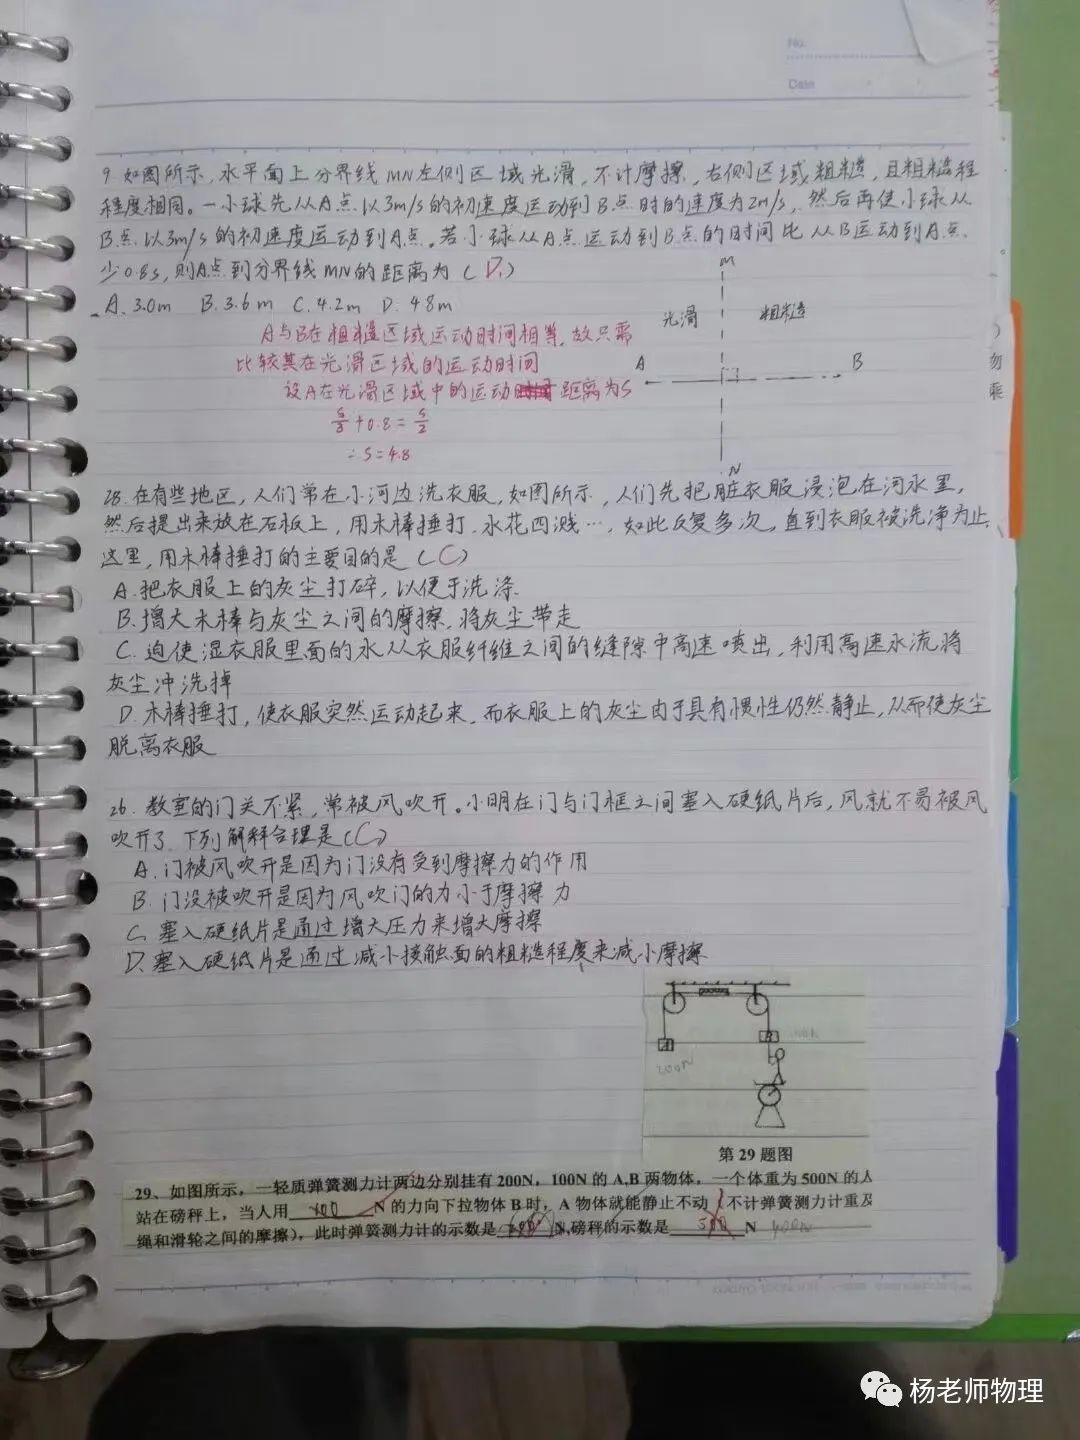 No.
Date
9. 如图所示,水平面上分界线MN左侧区域光滑,不计摩擦,右侧区域粗糙,且粗糙程
程度相同。一小球先从A点以3m/s的初速度运动到B点时的速度为2m/s,然后再使小球从
B点以3m/s的初速度运动到A点。若小球从A点运动到B点的时间比从B运动到A点
少0.8s,则A点到分界线MN的距离为(D)
A. 3.0m B. 3.6m C. 4.2m D. 4.8m
M
光滑 粗糙
A B
N
A与B在粗糙区域运动时间相等,故只需
比较其在光滑区域的运动时间
设A在光滑区域中的运动距离为S
S/3+0.8=S/2
∴S=4.8
28. 在有些地区,人们常在小河边洗衣服,如图所示,人们先把脏衣服浸泡在河水里,
然后提出来放在石板上,用木棒捶打,水花四溅…,如此反复多次,直到衣服被洗净为止.
这里,用木棒捶打的主要目的是(C)
A. 把衣服上的灰尘打碎,以便于洗涤.
B. 增大木棒与灰尘之间的摩擦,将灰尘带走
C. 迫使湿衣服里面的水从衣服纤维之间的缝隙中高速喷出,利用高速水流将
灰尘冲洗掉
D. 木棒捶打,使衣服突然运动起来,而衣服上的灰尘由于具有惯性仍然静止,从而使灰尘
脱离衣服
26. 教室的门关不紧,常被风吹开。小明在门与门框之间塞入硬纸片后,风就不易被风
吹开了.下列解释合理是(C)
A. 门被风吹开是因为门没有受到摩擦力的作用
B. 门没被吹开是因为风吹门的力小于摩擦力
C. 塞入硬纸片是通过增大压力来增大摩擦
D. 塞入硬纸片是通过减小接触面的粗糙程度来减小摩擦
200N
第29题图
29、如图所示,一轻质弹簧测力计两边分别挂有200N,100N的A,B两物体,一个体重为500N的人
站在磅秤上,当人用 100 N的力向下拉物体B时,A物体就能静止不动(不计弹簧测力计重及
绳和滑轮之间的摩擦),此时弹簧测力计的示数是 200 N,磅秤的示数是 500 N 400N
勿
乘
杨老师物理